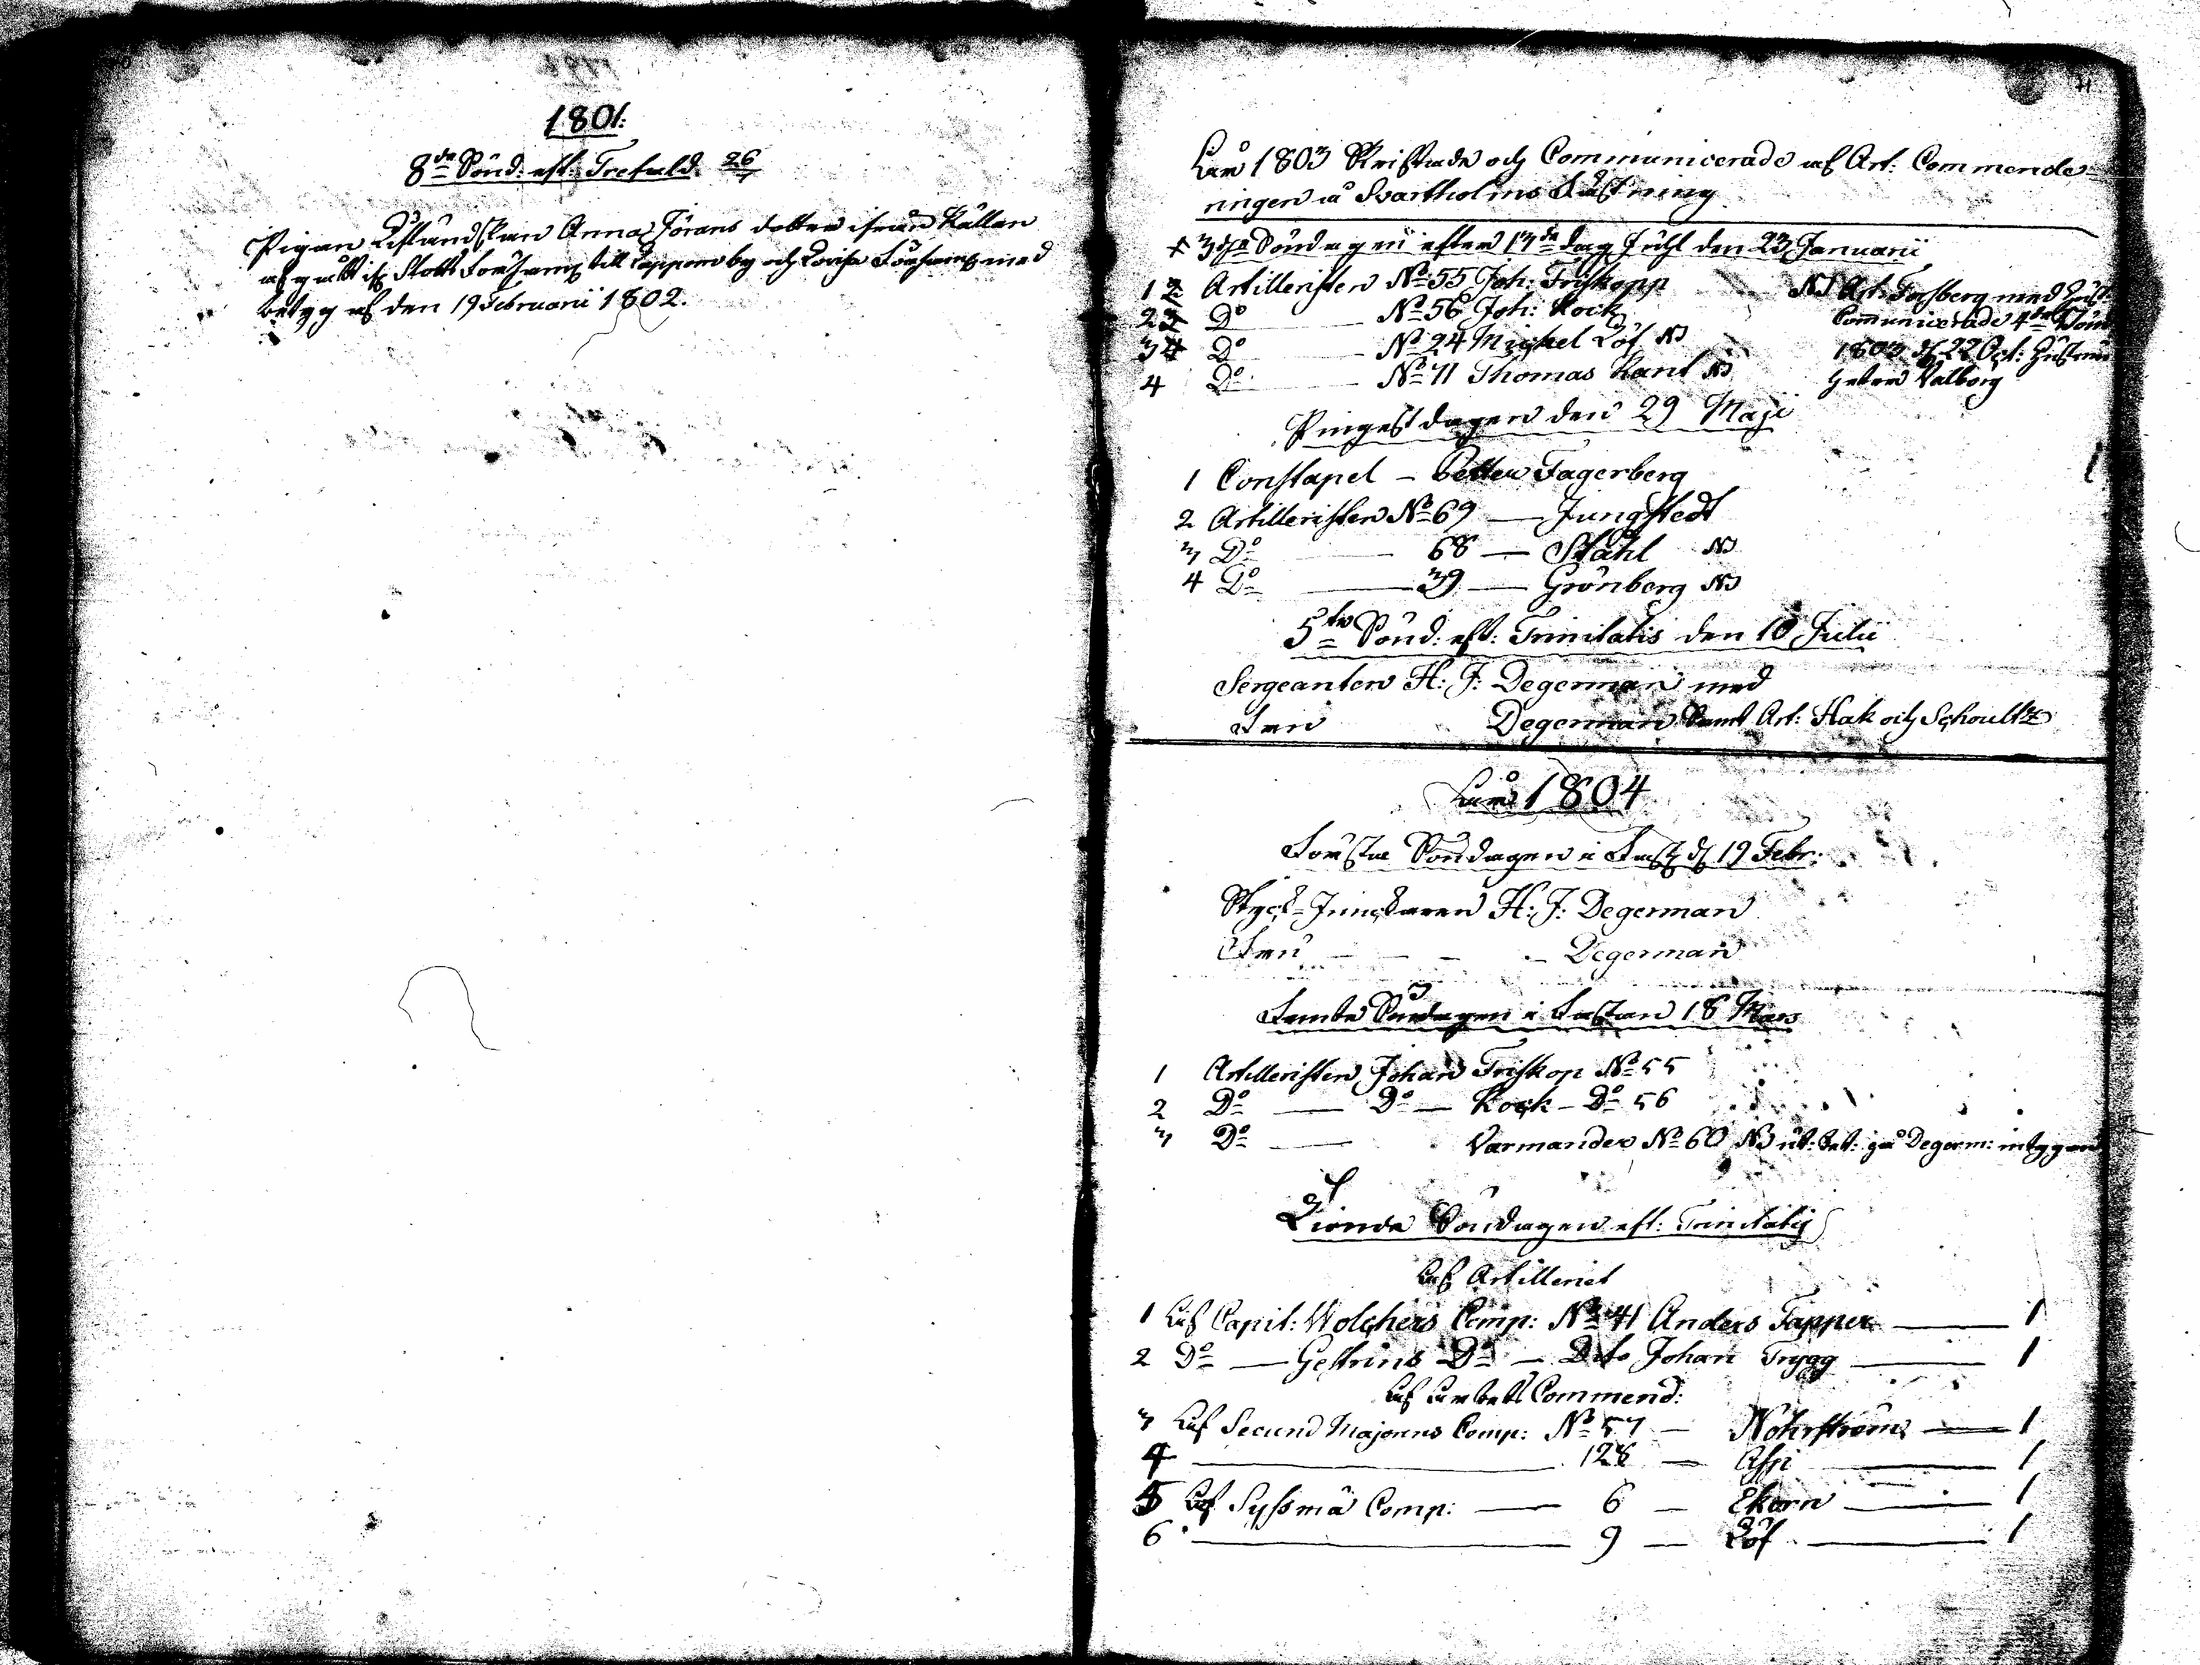 1801.
8de Sönd: eft: Trefald. 26/7
Pigan Estländskan Anna Jörans dotter ifrån Kållan
afgådt if Slotts Församl: till Capponby och Lovisa Församl: med
betyg af den 19 Februarii 1802.
År 1803 Skriftade och Communicerade af Art: Commende-
ringen å Svartholms Fästning
3dje Söndagen efter 13de dag Juhl den 23 Januarii
1 2 Artilleristen No 55 Joh: Friskopp
2 3 Do No 56 Joh: Kock
3 4 Do No 24 Michel Löf NB
4 Do No 71 Thomas Kant NB
NB Art: Forsberg med Hust:
Communicerade 4de Sönd
1803 d 22 Oct: Hustrun
heter Valborg
Pingest dagen den 29 Maji
1 Constapel – Petter Fagerberg
2 Artilleristen No 69 — Jungstedt
3 Do — 68 — Ståhl NB
4 Do — 39 — Grönberg NB
5te Sönd: eft: Trinitatis den 10 Julii
Sergeanten H: J: Degerman med
Fru Degerman samt Art: Hak och Schoultz
År 1804
Första Söndagen i Fast: d 19 Febr:
Styck-Junckaren H: J: Degerman
Fru — — — Degerman
Femte Söndagen i Fastan 18 Mars
1 Artilleristen Johan Friskop No 55
2 Do — Do — Kock – Do 56
3 Do — Varmander No 60 NB ut: bet: på Degerm: intygand
Tionde Söndagen eft: Trinitatis
Af Artilleriet
1 Af Capit: Wolchers Comp: No 41 Anders Tapper — 1
2 Do — Gestrins Do — Dito Johan Trygg — 1
Af Arbets Commend:
3 Af Secund Majorens Comp: No 57 — Nohrström — 1
4 — 128 — Asp — 1
5 Af Syssmä Comp: — 6 — Ekorn — 1
6 — 9 — Löf — 1